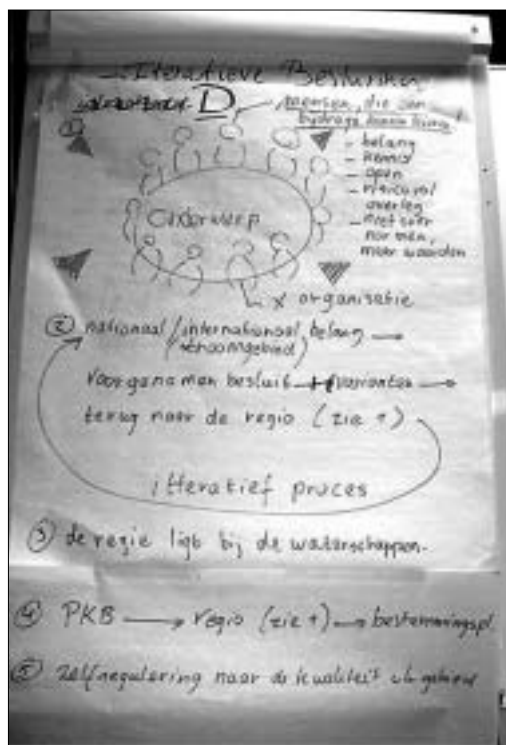 - Iteratieve Besluitv
D
mensen, die een
bijdrage kunnen leveren
①
- belang
- kennis
- open
- risicovol
overleg
- niet over
normen,
maar waarden
Onderwerp
x organisatie
② nationaal / internationaal belang →
(stroomgebied)
voorgenomen besluit + varianten →
terug naar de regio (zie 1)
itteratief proces
③ de regie ligt bij de waterschappen.
④ PKB → regio (zie 1) → bestemmingspl.
⑤ zelfregulering naar de kwaliteit v/h gebied